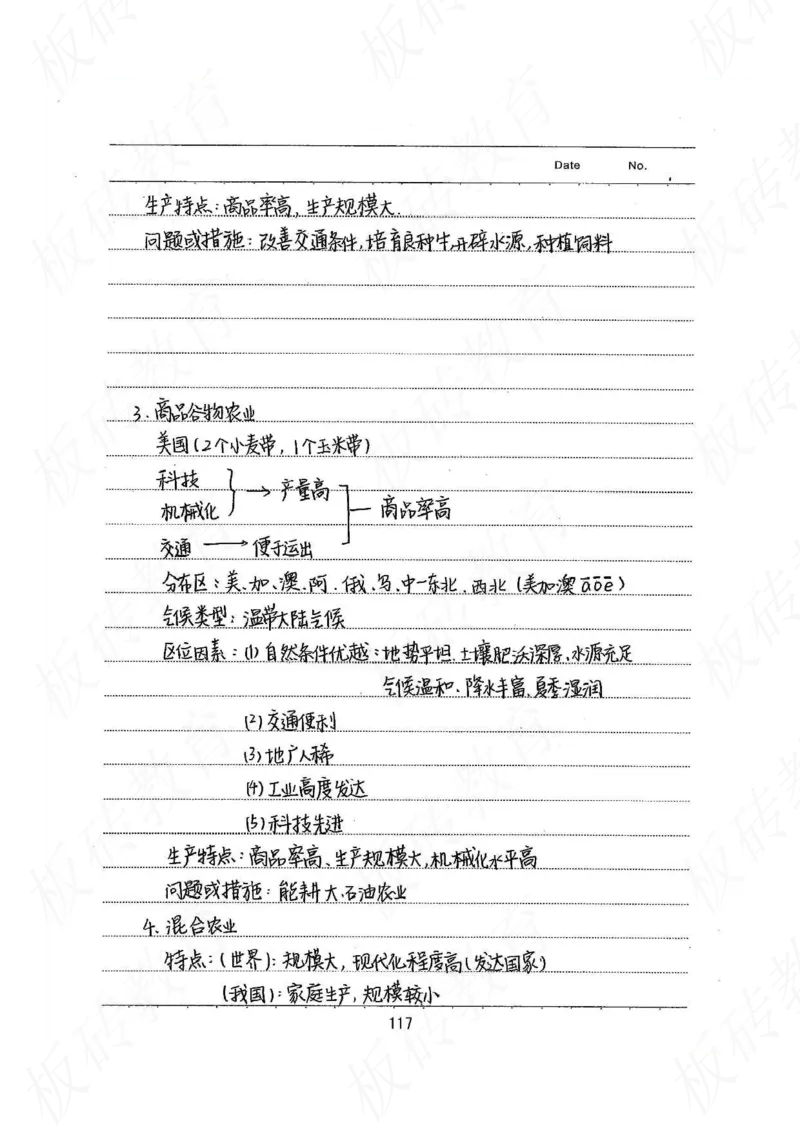 Date No.
生产特点:商品率高,生产规模大.
问题或措施:改善交通条件,培育良种牛,开辟水源,种植饲料
3.商品谷物农业
美国(2个小麦带,1个玉米带)
科技
机械化
→ 产量高
商品率高
交通 → 便于运出
分布区:美、加、澳、阿、俄、乌、中一东北、西北(美加澳 āōē)
气候类型:温带大陆气候
区位因素:(1)自然条件优越:地势平坦、土壤肥沃深厚、水源充足
气候温和、降水丰富、夏季湿润
(2)交通便利
(3)地广人稀
(4)工业高度发达
(5)科技先进
生产特点:商品率高、生产规模大,机械化水平高
问题或措施:能耗大、石油农业
4、混合农业
特点:(世界):规模大,现代化程度高(发达国家)
(我国):家庭生产,规模较小
117
板砖教育